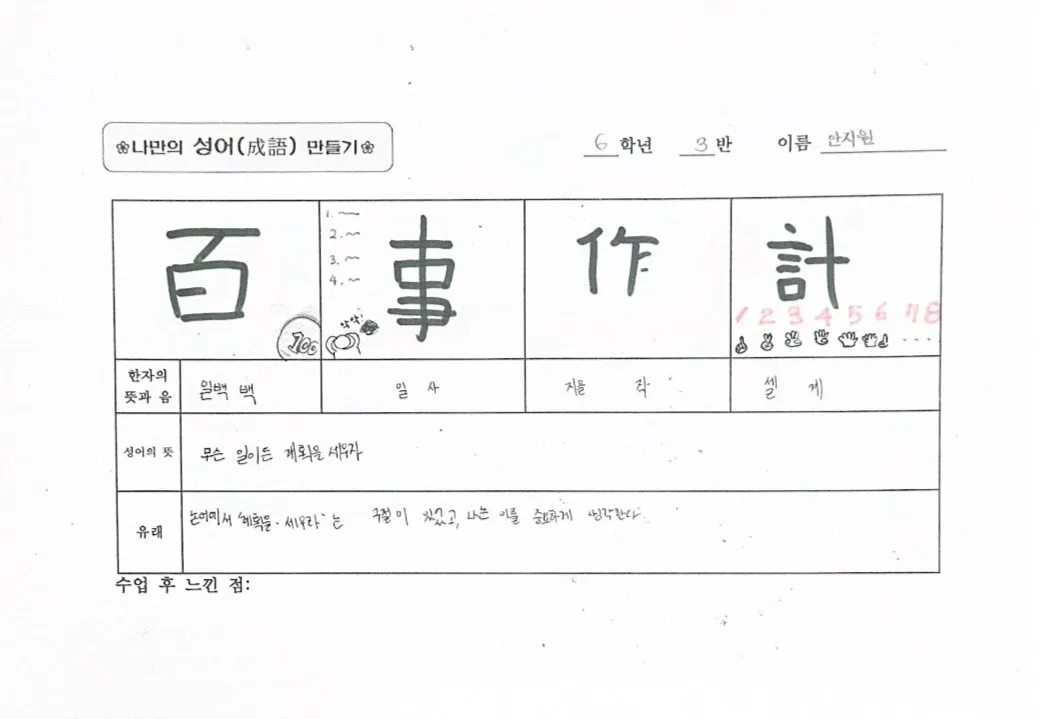 ❀나만의 성어(成語) 만들기❀
6 학년 3 반 이름 안지원
百 事 作 計
1. 2. 3. 4.
100
1 2 3 4 5 6 7 8
한자의 뜻과 음 일백 백 일 사 지을 작 셀 계
성어의 뜻 무슨 일이든 계획을 세우자
유래 논어에서 '계획을 세우라'는 구절이 있었고, 나는 이를 중요하게 생각한다.
수업 후 느낀 점: